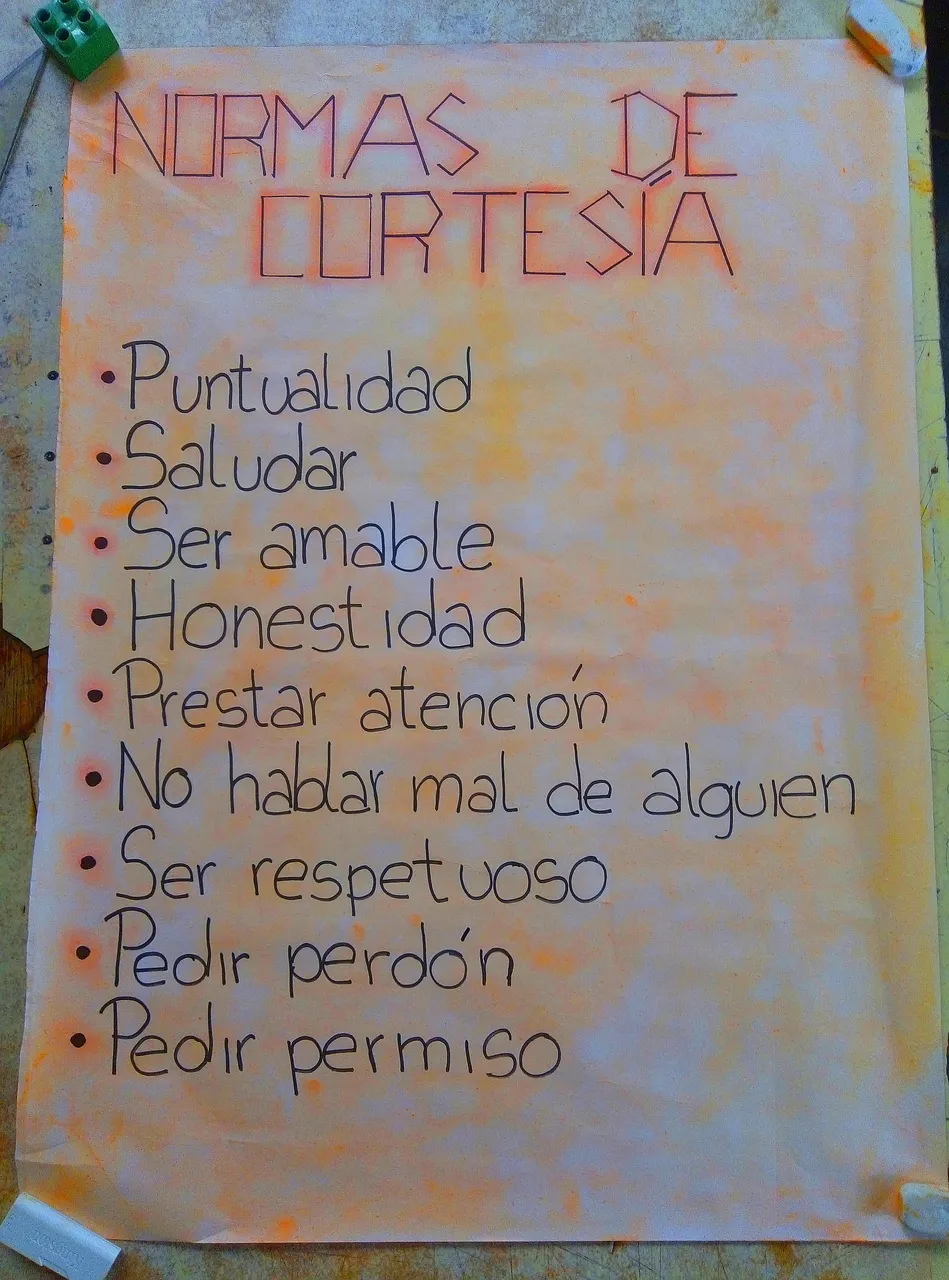 NORMAS DE
CORTESÍA
• Puntualidad
• Saludar
• Ser amable
• Honestidad
• Prestar atención
• No hablar mal de alguien
• Ser respetuoso
• Pedir perdón
• Pedir permiso